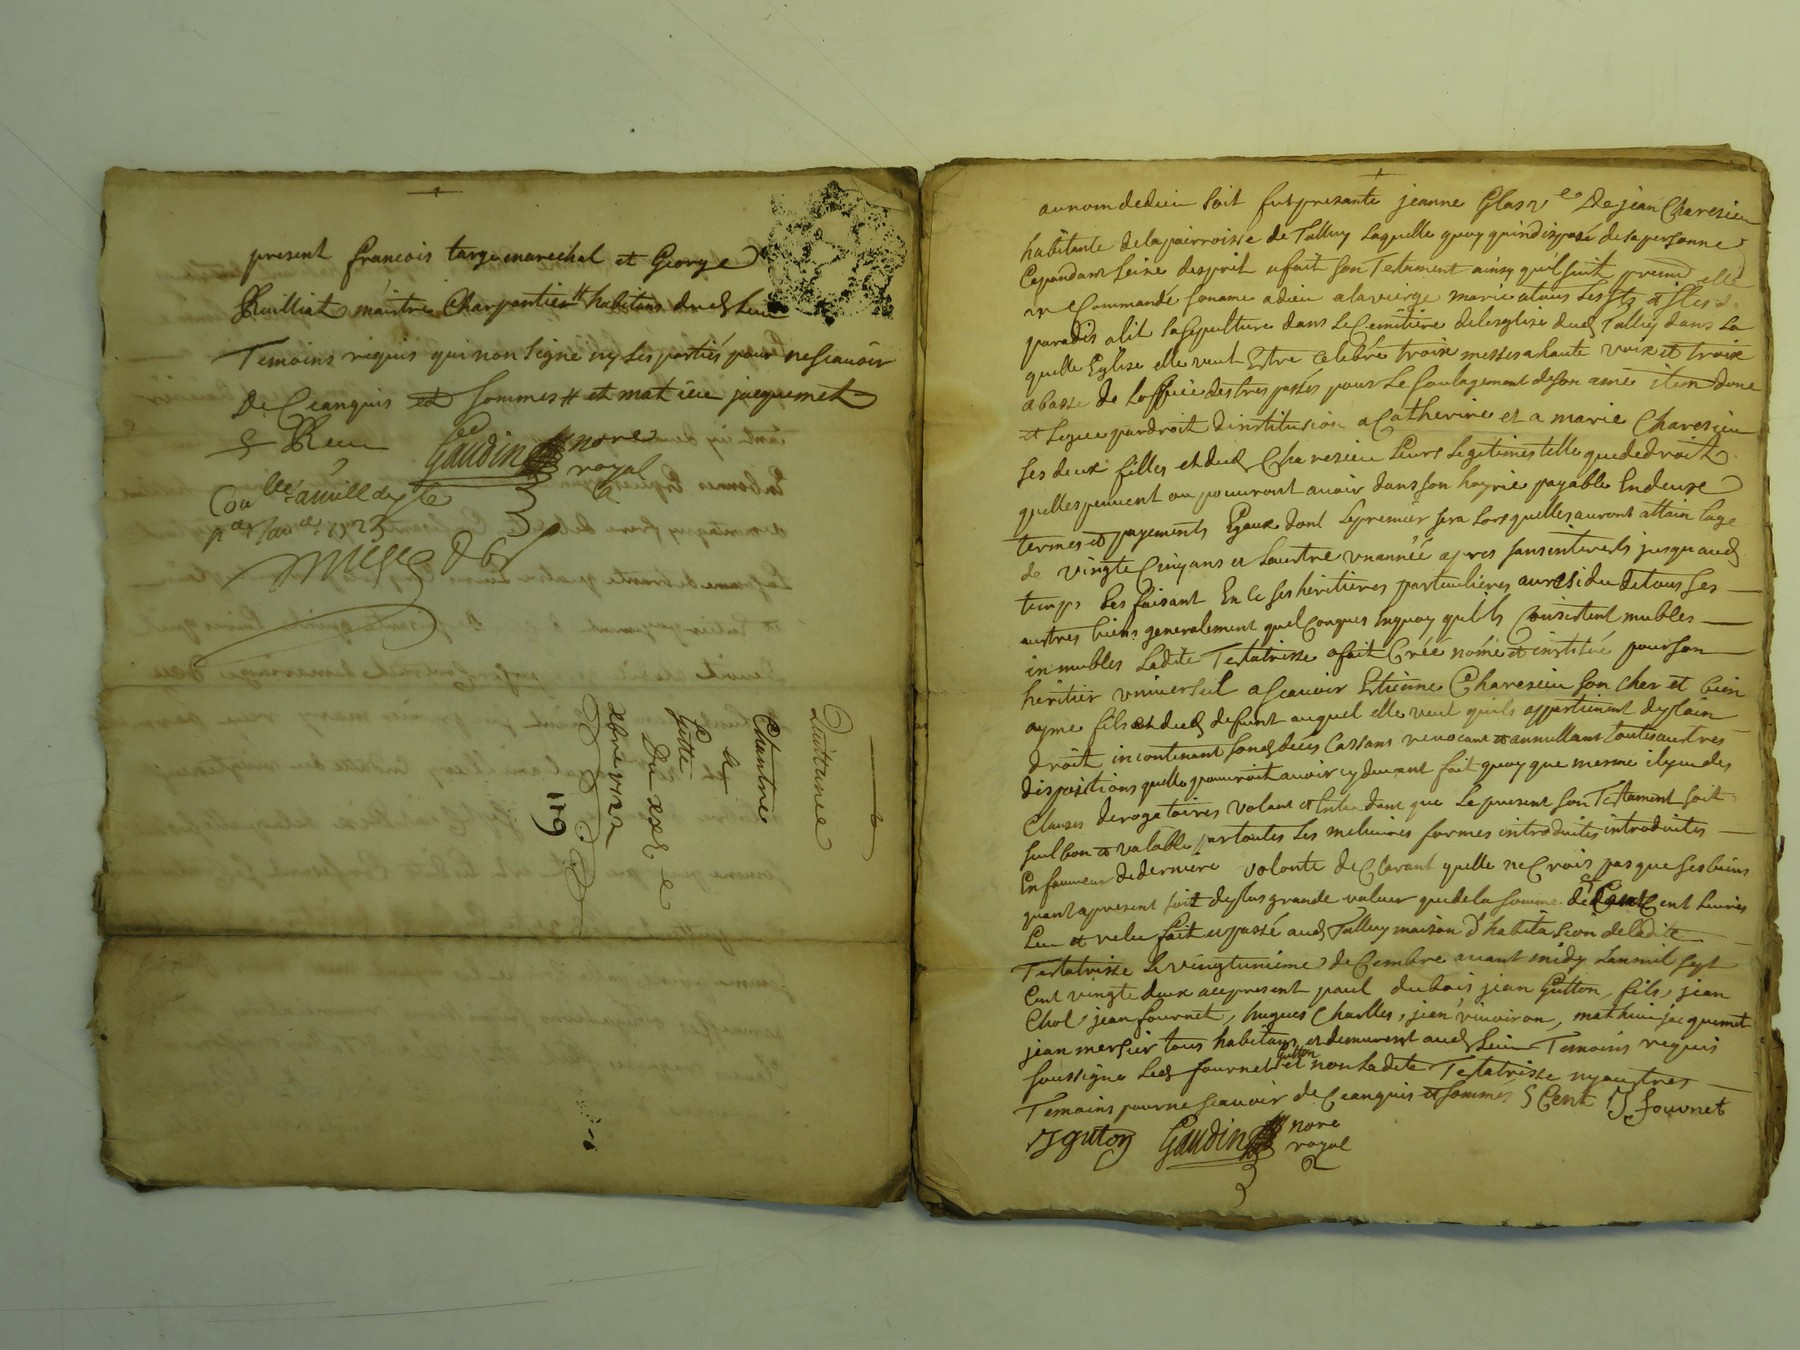 present francois targe marechal et George
Ruilliat maistre Charpantier habitans dud Lieu
Temoins requis qui non signe ny les parties pour ne scauoir
De Ceanquis et sommes et mathieu jacquemet
Gaudin nore
royal
1723
Quittance
Chantrie
a
Gutte
Du xxe
xbre 1722
119
au nom de dieu soit fut presante jeanne Glas ve De jean Charezieu
habitante de la pairroisse de Talluy Laquelle quoy quindisposé de sa personne
Cependant seine desprit a fait son Testament ainsy quil suit premt elle
recommandé son ame a dieu a la vierge marie a tous les sts et stes du
paradis a lit sa sepulture dans le Cemitiere de leglise dud Talluy dans La
quelle Eglise elle veut Estre celebré troix messes a haute voix et troix
a basse de Loffice des trespassés pour Le soulagement de son ame item donne
et Legue par droit dinstitusion a Catherine et a marie Charezieu
ses deux filles et dud Charezieu Leurs Legitimes telle que de droit
quelles peuuent ou pouuront auoir dans son hoyrie payable En deux
termes et payements Egaux dont Le premier sera Lors quelles auront attain Lage
de vingte Cinq ans et Lautre vnannéé apres sans interests jusquaud
temps Les faisant En Ce ses heritieres particulieres au residu de tous ses
austres biens generalement quelConques En quoy quils Consistent mubles
inmubles Ladite Testatrisse a fait Créé nomé et institué pour son
heritier vniversel a scauoir Estienne Charezieu son cher et bien
ayme fils et dud defunt auquel elle veut quils appartienent de plain
droit incontenant son deces Cassant reuocant et annullant toutes austres
dispositions quelle pouuroit auoir cy deuant fait quoy que mesme il y eu des
Clauses derogatoires volant et Entendant que Le present son Testament soit
seul bon et valable par toutes Les melieures formes introduites introduites
En faueur de derniere volonte declarant quelle ne Crois pas que ses biens
quant a present soit de plus grande valeur que de la somme de Cent Liures
Leu et releu fait et passé aud Talluy maison d'habitasion de Ladite
Testatrisse Le vingtunieme decembre auant midy Lan mil sept
Cent vingte deux a ce present paul dubois jean Gutton, fils, jean
Chol, jean fournet, hugues Charlles, jean viuoiron, mathieu jacquemet
jean mersier tous habitans et demeurent aud Lieu Temoins requis
soussigne Led fournet et Gutton non Ladite Testatrisse ny austres
Temoins pour ne scauoir de Ceanquis et sommés 5 Cent J fournet
J guton Gaudin nore
royal